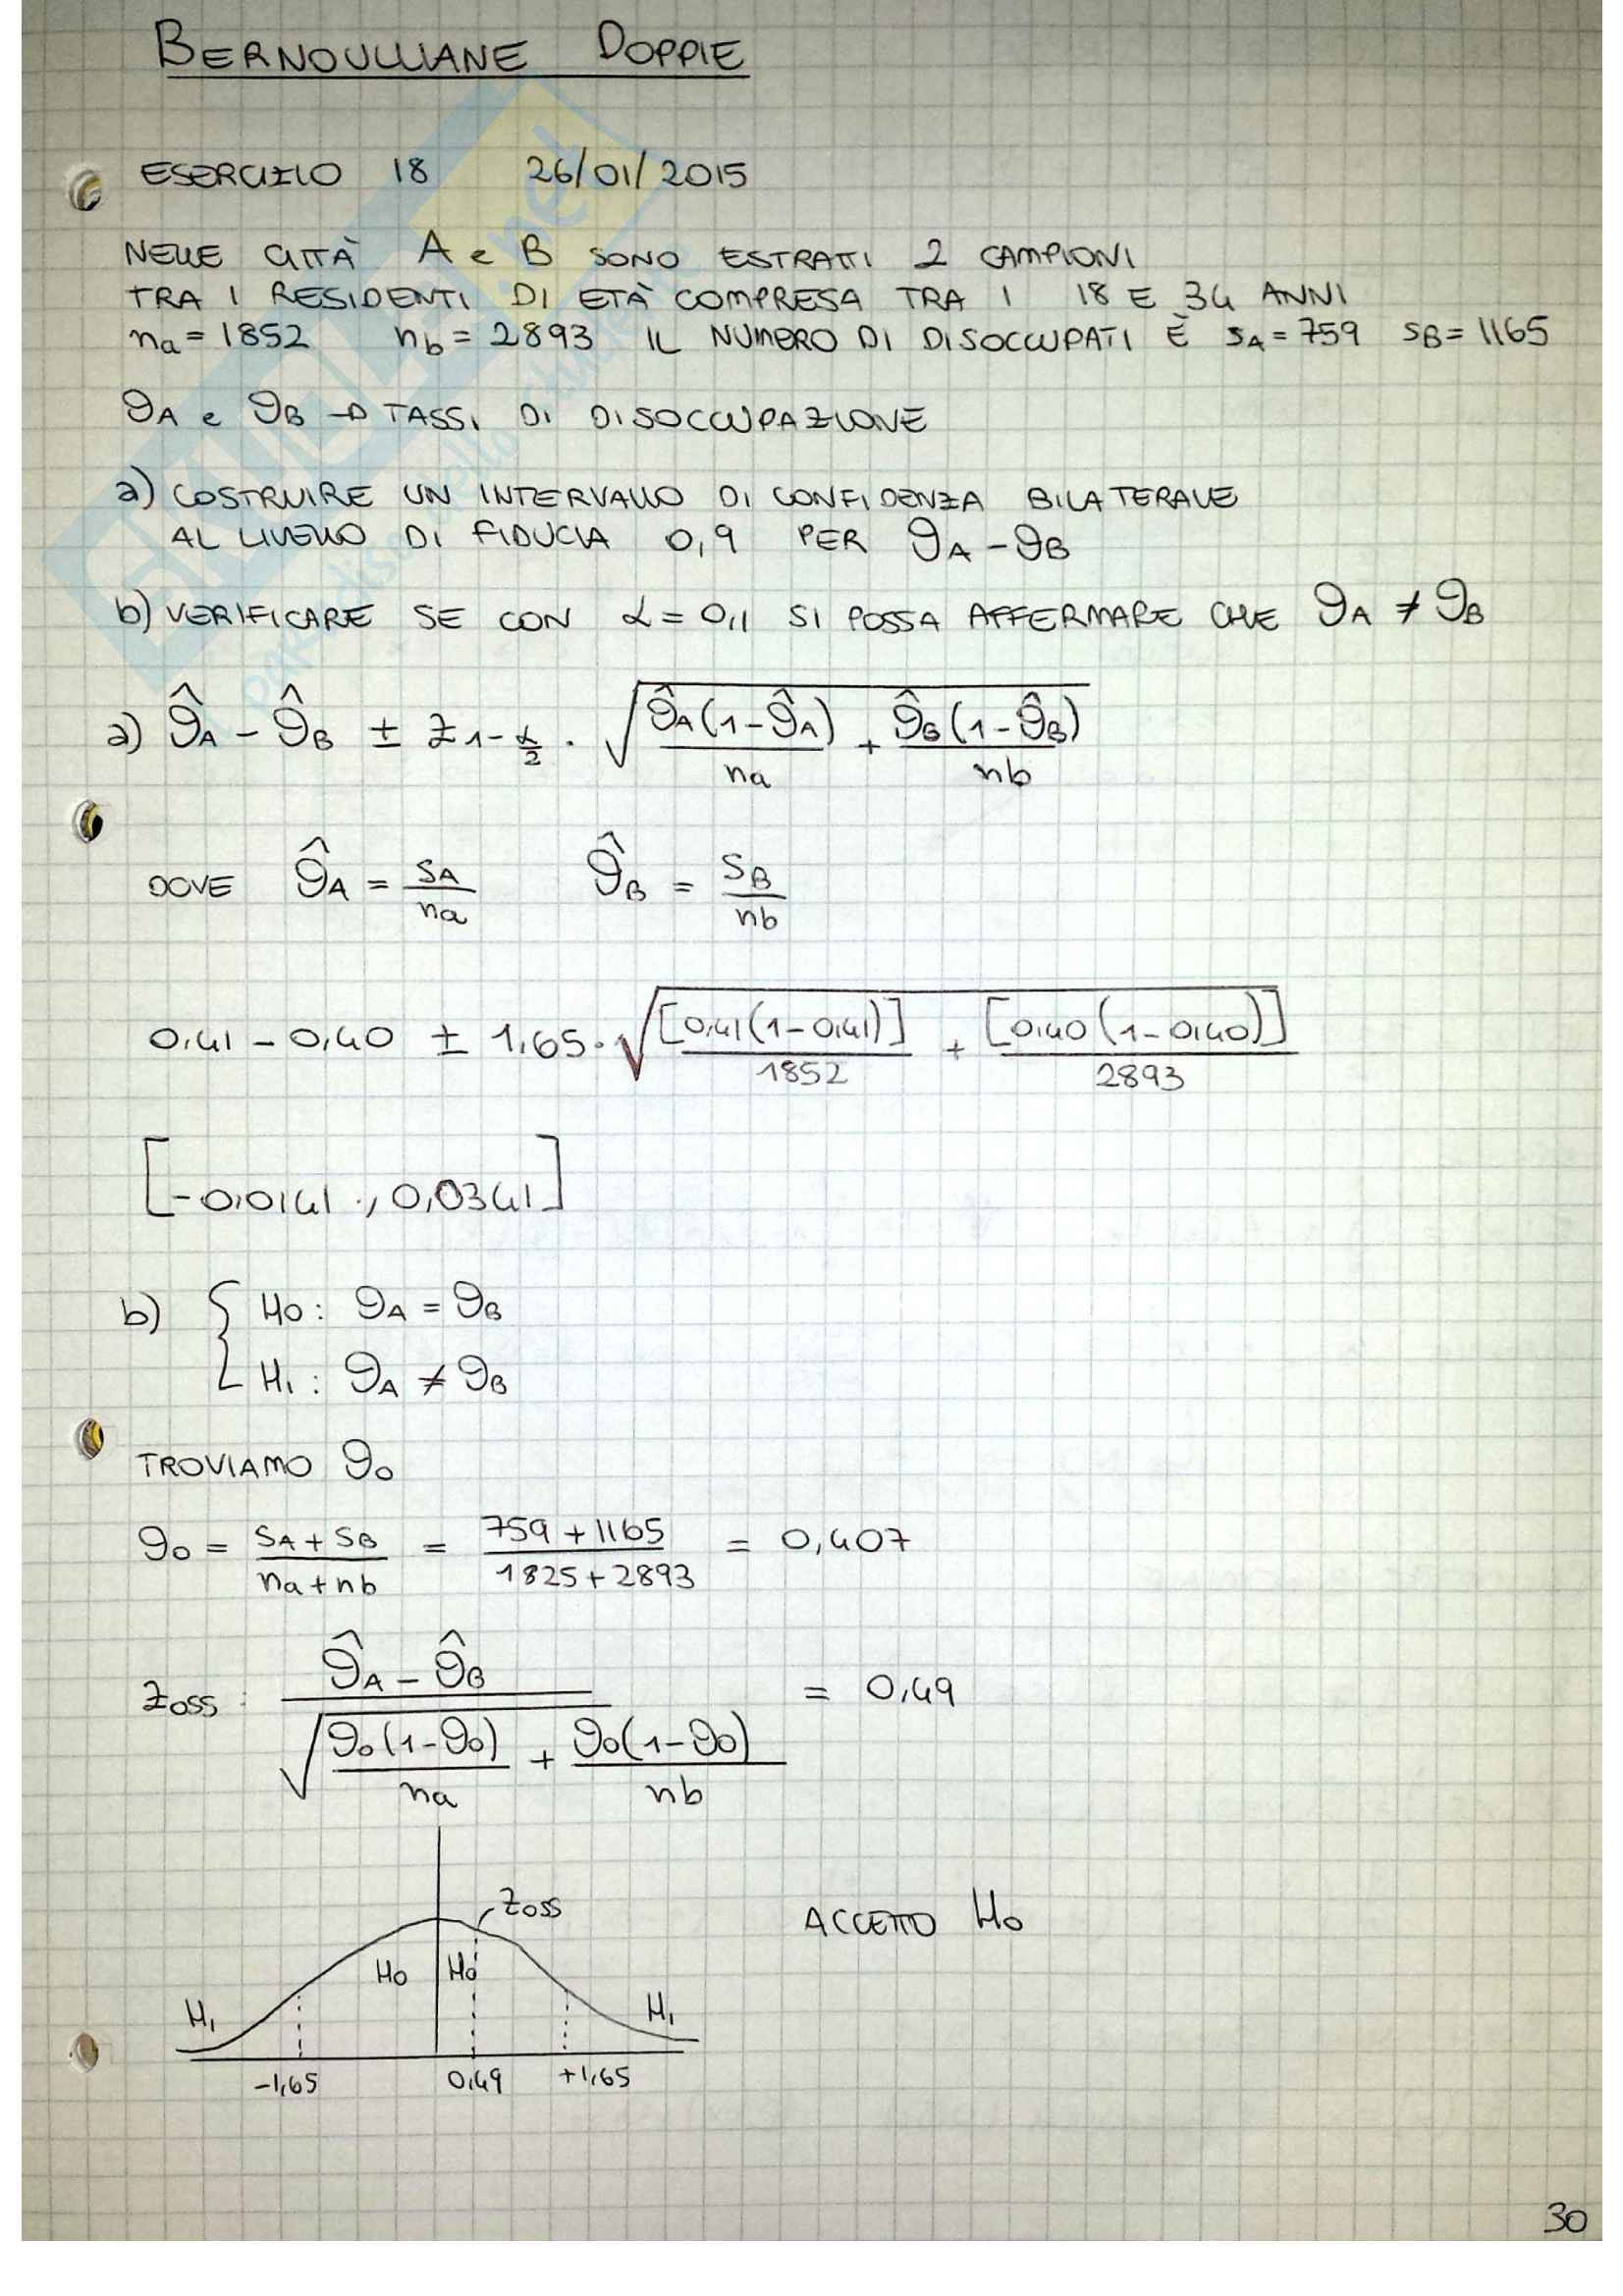 BERNOULLIANE DOPPIE
ESERCIZIO 18 26/01/2015
NELLE CITTÀ A e B SONO ESTRATTI 2 CAMPIONI
TRA I RESIDENTI DI ETÀ COMPRESA TRA I 18 E 34 ANNI
na = 1852 nb = 2893 IL NUMERO DI DISOCCUPATI È SA = 759 SB = 1165
ϑA e ϑB → TASSI DI DISOCCUPAZIONE
a) COSTRUIRE UN INTERVALLO DI CONFIDENZA BILATERALE
AL LIVELLO DI FIDUCIA 0,9 PER ϑA - ϑB
b) VERIFICARE SE CON α = 0,1 SI POSSA AFFERMARE CHE ϑA ≠ ϑB
a) ϑ̂A - ϑ̂B ± z1-α/2 · √(ϑ̂A(1-ϑ̂A)/na + ϑ̂B(1-ϑ̂B)/nb)
DOVE ϑ̂A = SA/na ϑ̂B = SB/nb
0,41 - 0,40 ± 1,65 · √([0,41(1-0,41)]/1852 + [0,40(1-0,40)]/2893)
[-0,0141 ; 0,0341]
b) { H0: ϑA = ϑB
H1: ϑA ≠ ϑB
TROVIAMO ϑ0
ϑ0 = SA + SB/na + nb = 759 + 1165/1825 + 2893 = 0,407
zoss: ϑ̂A - ϑ̂B/√(ϑ0(1-ϑ0)/na + ϑ0(1-ϑ0)/nb) = 0,49
zoss
ACCETTO H0
H0 H0
H1 H1
-1,65 0,49 +1,65
30